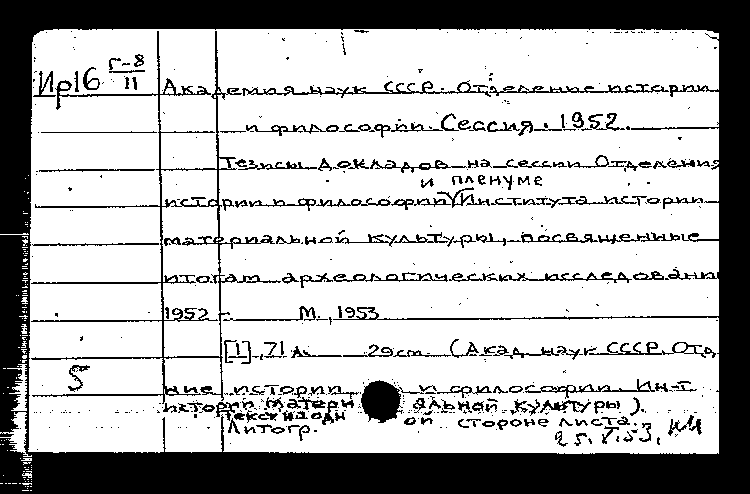 Ир16 Г-8
II
Академия наук СССР. Отделение истории
и философии. Сессия. 1952.
Тезисы докладов на сессии Отделения
и пленуме
истории и философии Института истории
материальной культуры, посвященные
итогам археологических исследований
1952 г. М., 1953
[1], 71 л. 29 cm. (Акад. наук СССР. Отд
5
ние истории и философии. Ин-т
истории матери альной культуры).
Текст на одн ой стороне листа.
Литогр.
25.V.53,